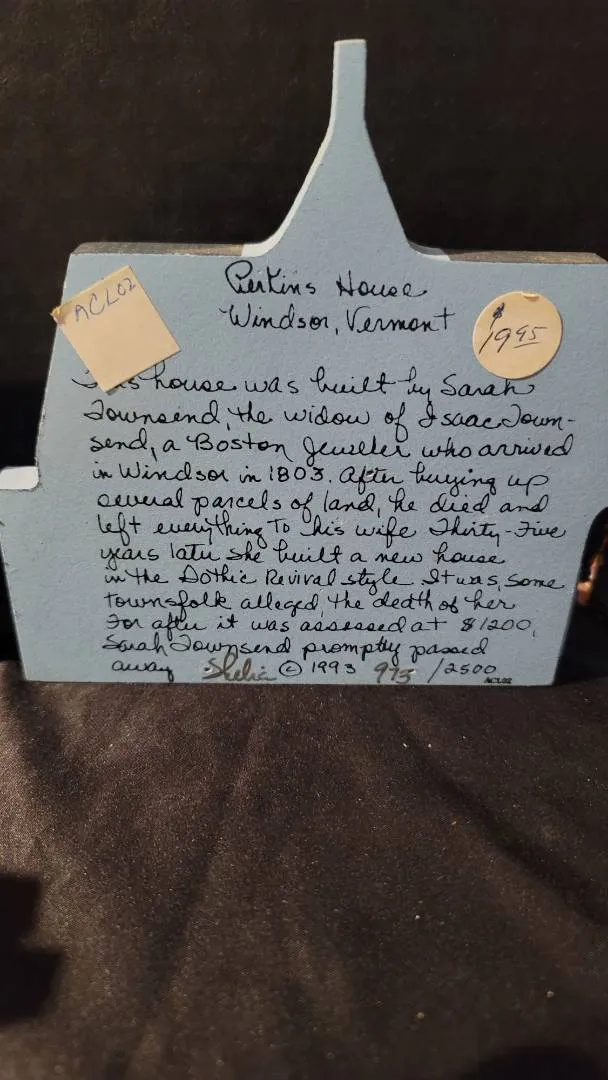 Perkins House
Windsor, Vermont
ACL02
$19.95
This house was built by Sarah
Townsend, the widow of Isaac Town-
send, a Boston Jeweller who arrived
in Windsor in 1803. After buying up
several parcels of land, he died and
left everything To his wife Thirty-Five
years later she built a new house
in the Gothic Revival style It was, some
townsfolk alleged, the death of her
For after it was assessed at $1200,
Sarah Townsend promptly passed
away Shelia © 1993 973 /2500
ACL02